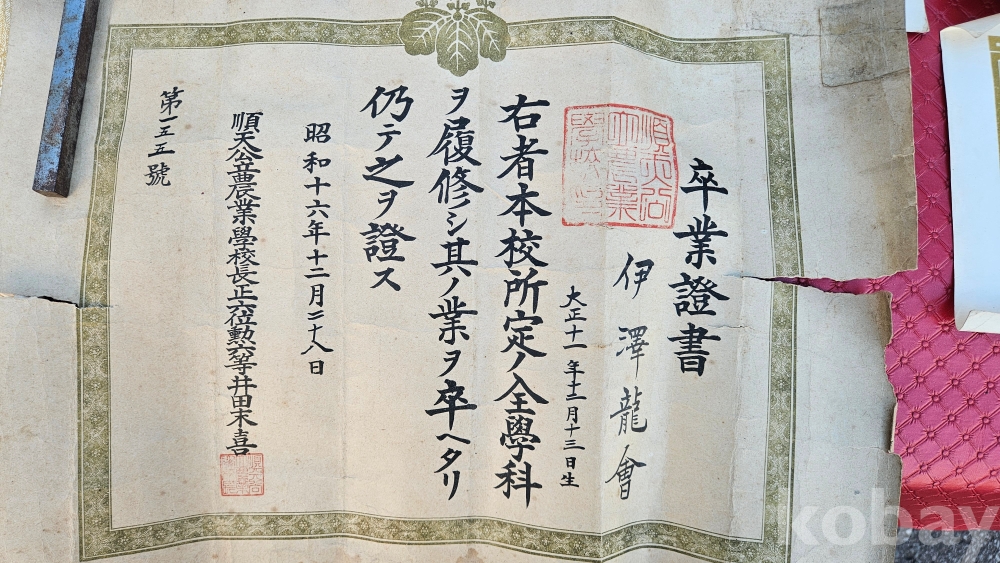 卒業證書
伊澤龍會
大正十一年十二月十三日生
右者本校所定ノ全學科
ヲ履修シ其ノ業ヲ卒ヘタリ
仍テ之ヲ證ス
昭和十六年十二月二十八日
順天公立農業學校長正六位勲六等井田末喜
第一五五號
kobay